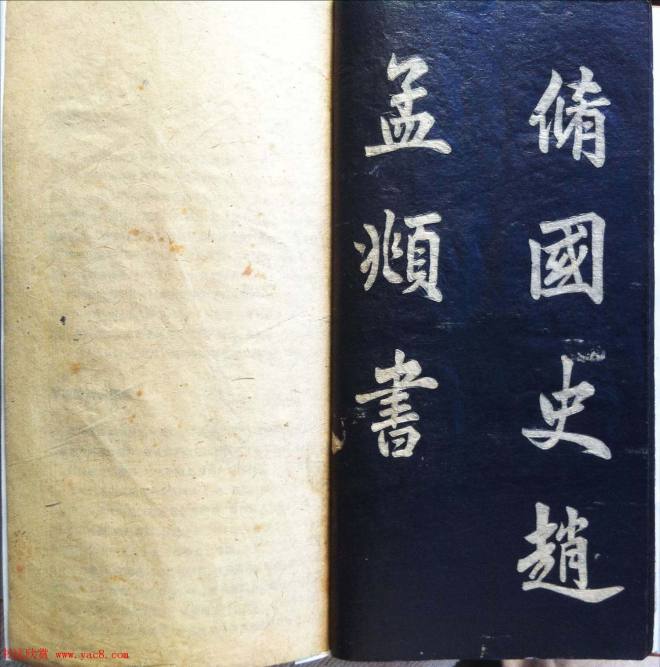 脩國史趙
孟頫書
书法欣赏 www.yac8.com